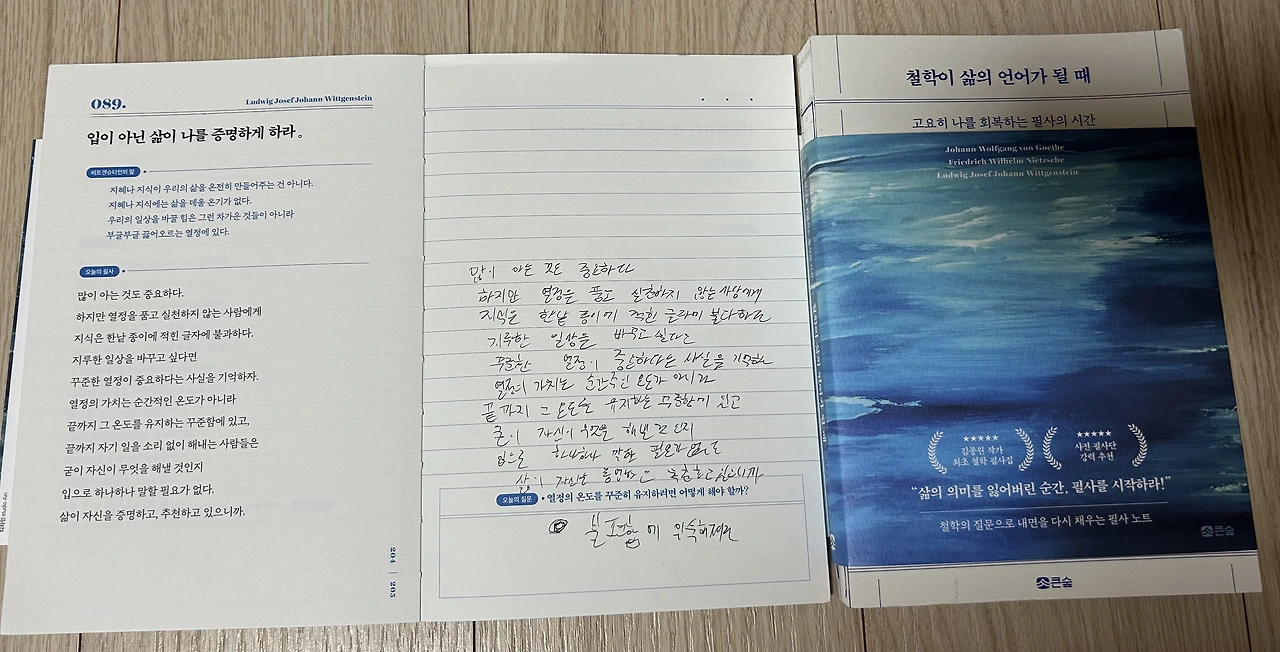 089.
Ludwig Josef Johann Wittgenstein
입이 아닌 삶이 나를 증명하게 하라。
비트겐슈타인의 말
지혜나 지식이 우리의 삶을 온전히 만들어주는 건 아니다.
지혜나 지식에는 삶을 데울 온기가 없다.
우리의 일상을 바꿀 힘은 그런 차가운 것들이 아니라
부글부글 끓어오르는 열정에 있다.
오늘의 필사
많이 아는 것도 중요하다.
하지만 열정을 품고 실천하지 않는 사람에게
지식은 한낱 종이에 적힌 글자에 불과하다.
지루한 일상을 바꾸고 싶다면
꾸준한 열정이 중요하다는 사실을 기억하자.
열정의 가치는 순간적인 온도가 아니라
끝까지 그 온도를 유지하는 꾸준함에 있고,
끝까지 자기 일을 소리 없이 해내는 사람들은
굳이 자신이 무엇을 해낼 것인지
입으로 하나하나 말할 필요가 없다.
삶이 자신을 증명하고, 추천하고 있으니까.
204 | 205
많이 아는 것도 중요하다
하지만 열정을 품고 실천하지 않는 사람에게
지식은 한낱 종이에 적힌 글자에 불과하다
지루한 일상을 바꾸고 싶다면
꾸준한 열정이 중요하다는 사실을 기억하자
열정의 가치는 순간적인 온도가 아니라
끝까지 그 온도를 유지하는 꾸준함에 있고
굳이 자신이 무엇을 해낼 것인지
입으로 하나하나 말할 필요가 없다
삶이 자신을 증명하고
오늘의 질문
열정의 온도를 꾸준히 유지하려면 어떻게 해야 할까?
불편함에 익숙해져라
철학이 삶의 언어가 될 때
고요히 나를 회복하는 필사의 시간
Johann Wolfgang von Goethe
Friedrich Wilhelm Nietzsche
Ludwig Josef Johann Wittgenstein
★★★★★
김종원 작가
최초 철학 필사집
★★★★★
사전 필사단
강력 추천
“삶의 의미를 잃어버린 순간, 필사를 시작하라!”
철학의 질문으로 내면을 다시 채우는 필사 노트
큰숲
큰숲